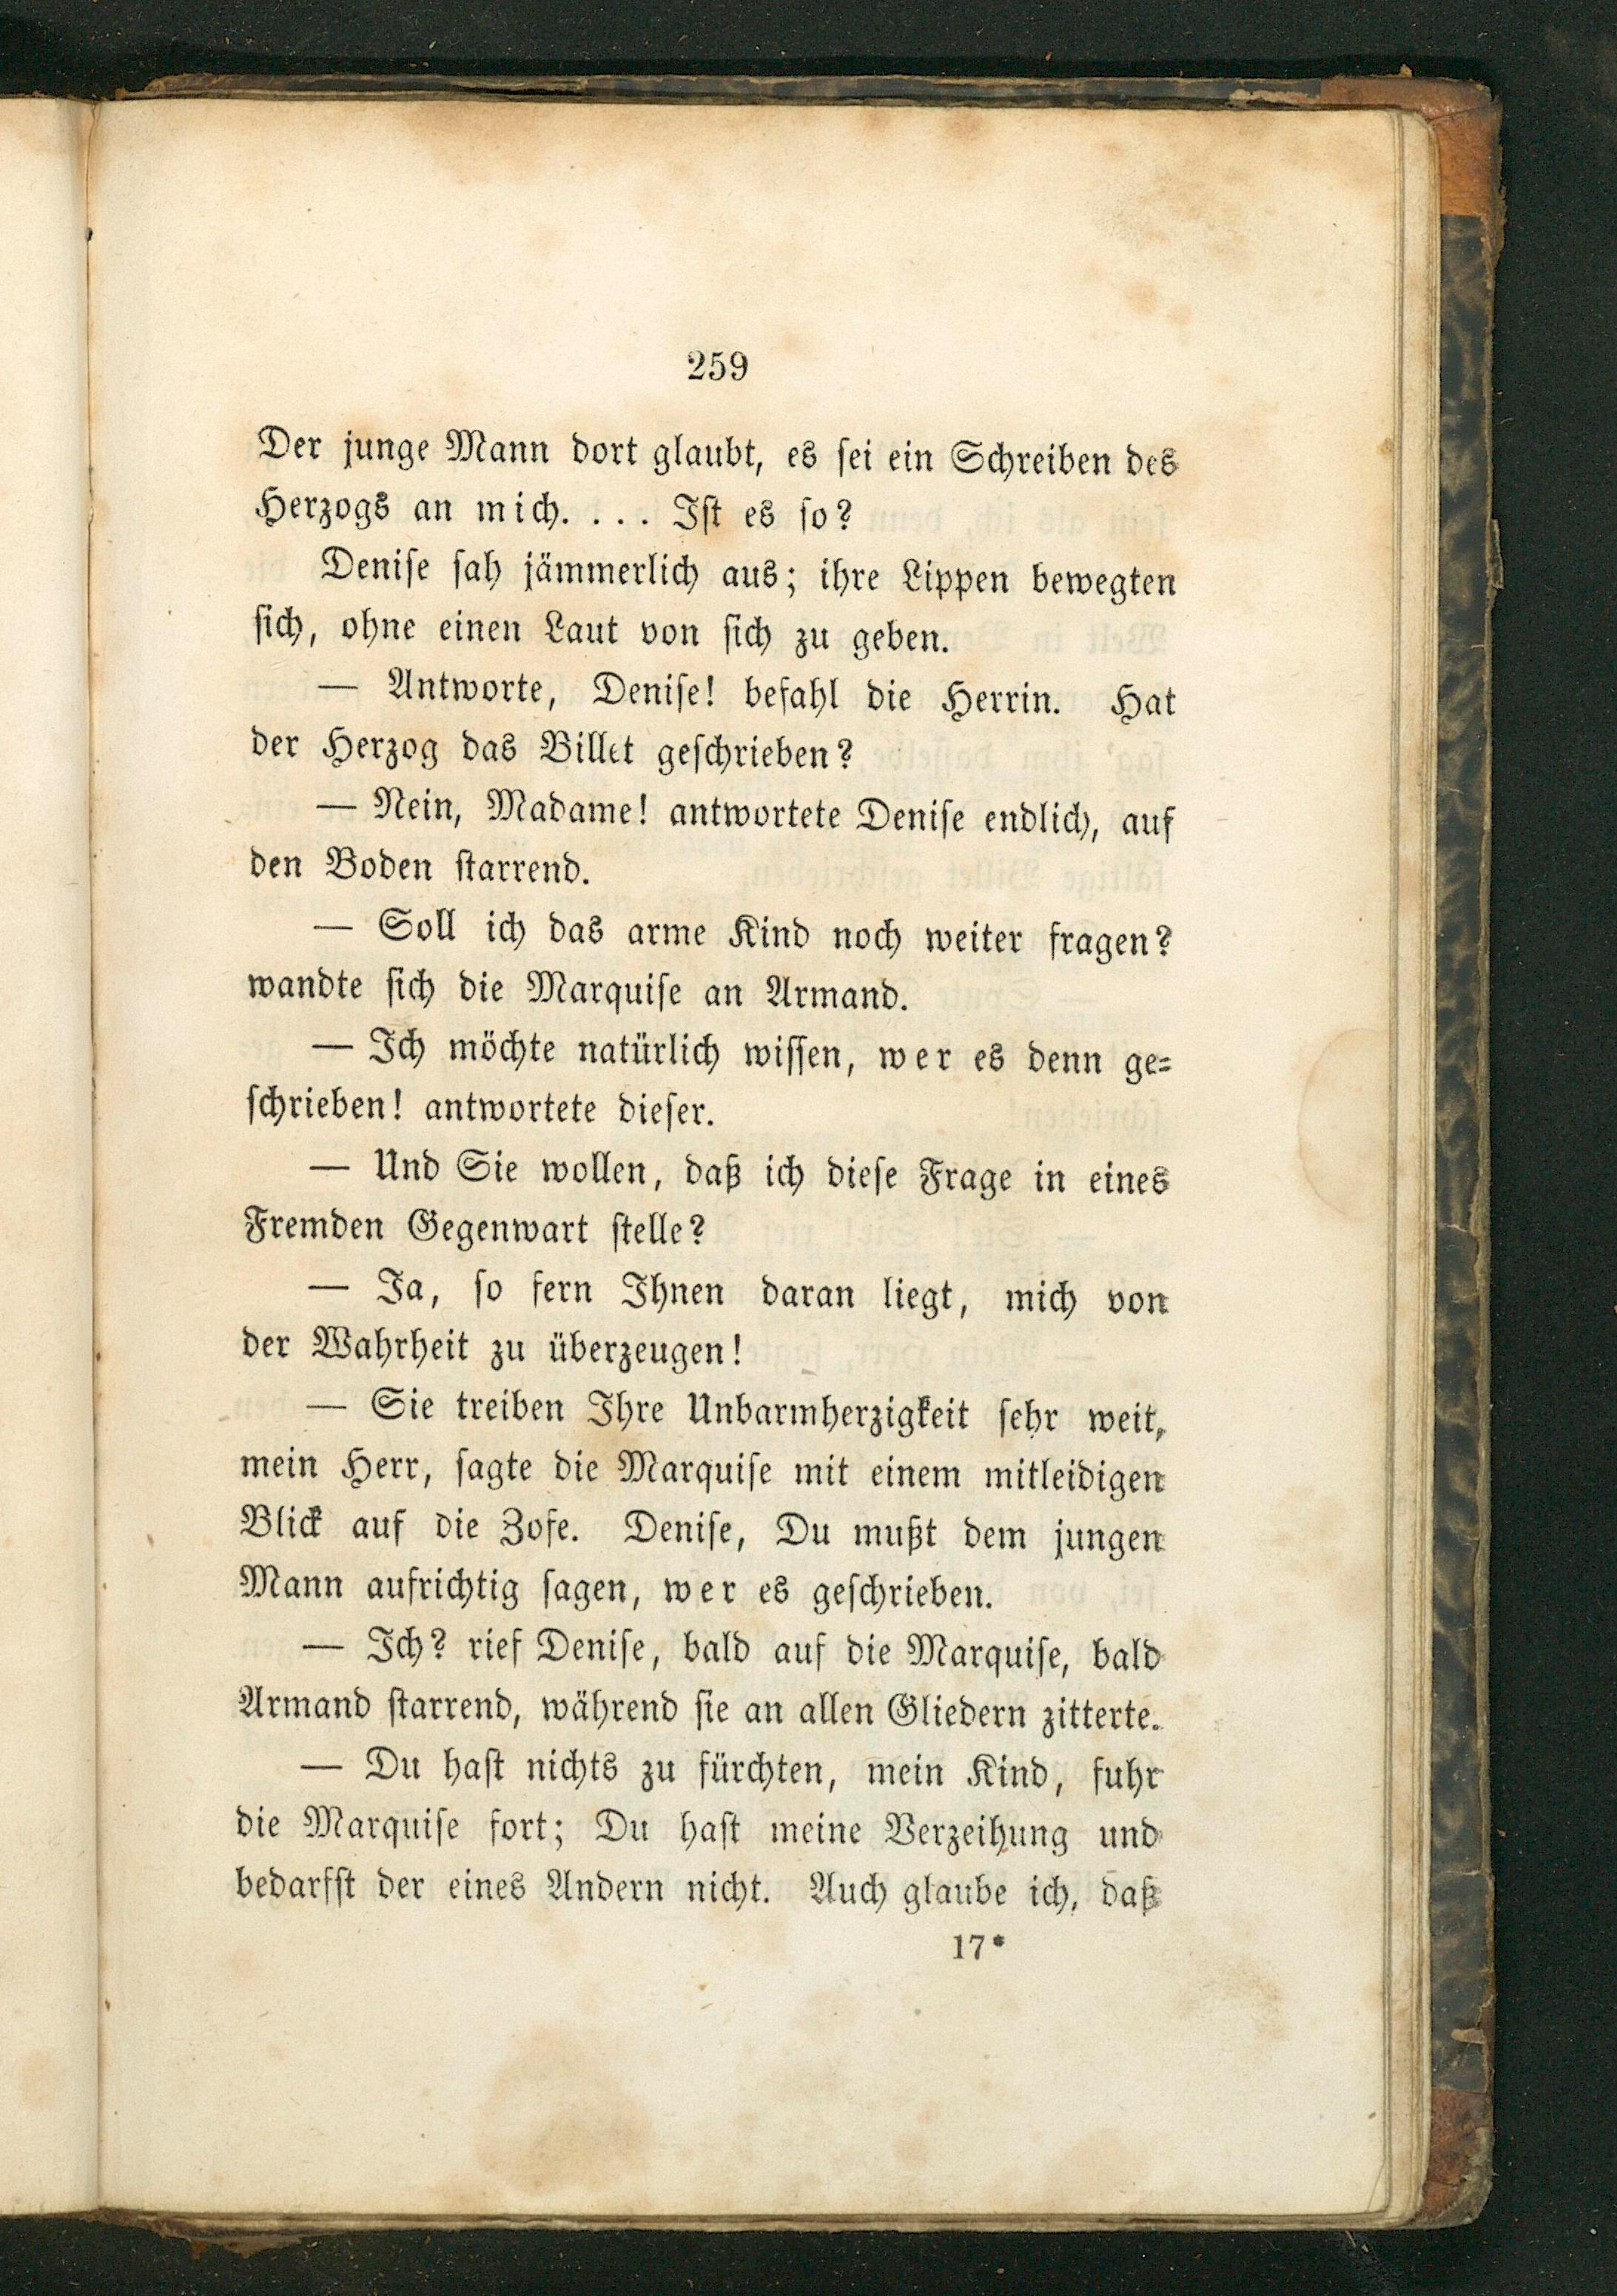 259
Der junge Mann dort glaubt, es sei ein Schreiben des
Herzogs an mich. . . . Ist es so?
Denise sah jämmerlich aus; ihre Lippen bewegten
sich, ohne einen Laut von sich zu geben.
— Antworte, Denise! befahl die Herrin. Hat
der Herzog das Billet geschrieben?
— Nein, Madame! antwortete Denise endlich, auf
den Boden starrend.
— Soll ich das arme Kind noch weiter fragen?
wandte sich die Marquise an Armand.
— Ich möchte natürlich wissen, wer es denn ge-
schrieben! antwortete dieser.
— Und Sie wollen, daß ich diese Frage in eines
Fremden Gegenwart stelle?
— Ja, so fern Ihnen daran liegt, mich von
der Wahrheit zu überzeugen!
— Sie treiben Ihre Unbarmherzigkeit sehr weit,
mein Herr, sagte die Marquise mit einem mitleidigen
Blick auf die Zofe. Denise, Du mußt dem jungen
Mann aufrichtig sagen, wer es geschrieben.
— Ich? rief Denise, bald auf die Marquise, bald
Armand starrend, während sie an allen Gliedern zitterte.
— Du hast nichts zu fürchten, mein Kind, fuhr
die Marquise fort; Du hast meine Verzeihung und
bedarfst der eines Andern nicht. Auch glaube ich, daß
17*